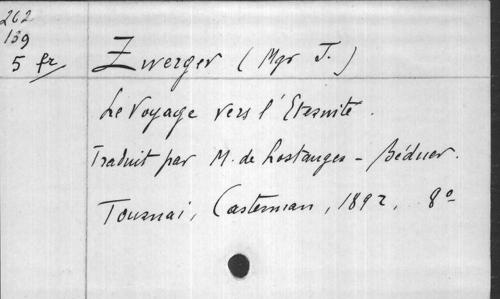 262
139
5 fr
Zwerger (Mgr J.)
Le Voyage vers l'Eternité.
Traduit par M. de Lostanges - Béduer.
Tournai, Casterman, 1892, 8º